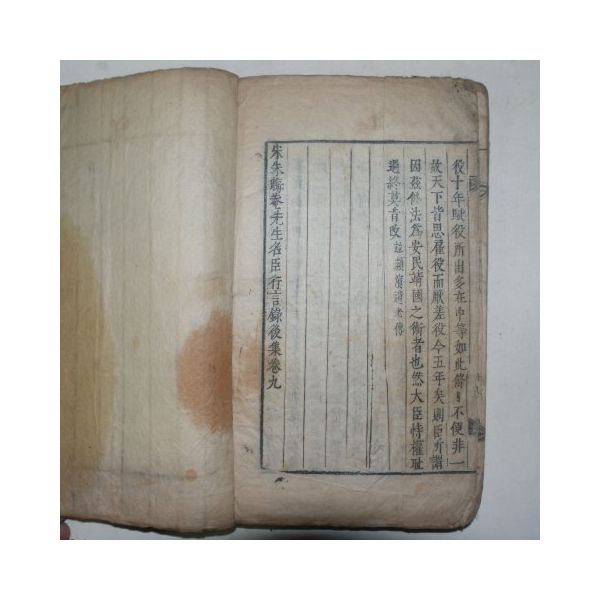 役十年賦役所出多在中等如此條目不便非一
故天下皆思雇役而厭差役今五年矣則臣所謂
因玆修法爲安民靖國之術者也然大臣恃權耻
過終莫肯改並潁濱遺老傳
宋朱晦菴先生名臣言行錄後集卷九